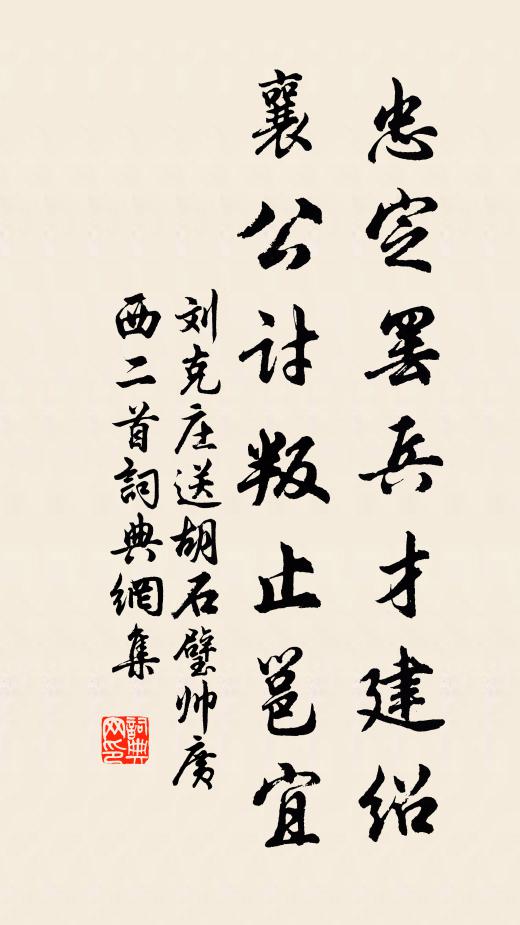 忠定罢兵才建绍
襄公讨叛止邕宜
刘克庄送胡石壁帅广
西二首詞典網集
詞典網印